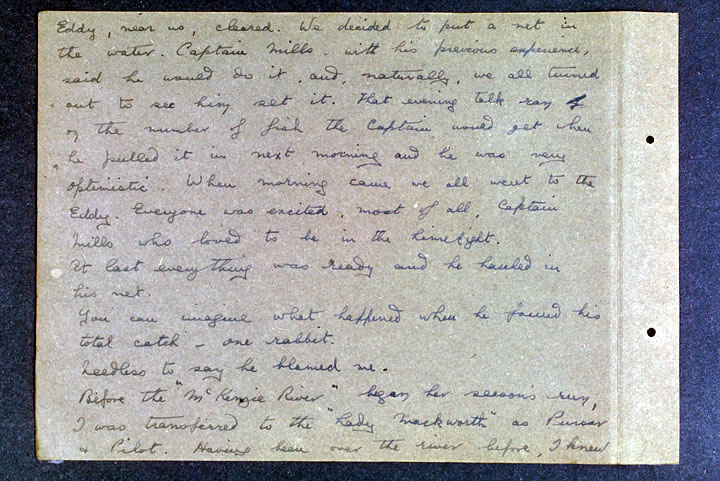 Eddy, near us, cleared. We decided to put a net in
the water. Captain Mills - with his previous experience,
said he would do it, and, naturally, we all turned
out to see him set it. That evening talk ran
on the number of fish the Captain would get when
he pulled it in next morning and he was very
optimistic. When morning came we all went to the
Eddy. Everyone was excited, most of all, Captain
Mills who loved to be in the limelight.
At last everything was ready and he hauled in
his net.
You can imagine what happened when he found his
total catch - one rabbit.
Needless to say he blamed me.
Before the "McKenzie River" began her season's run,
I was transferred to the "Lady Mackworth" as Purser
& Pilot. Having been over the river before, I knew